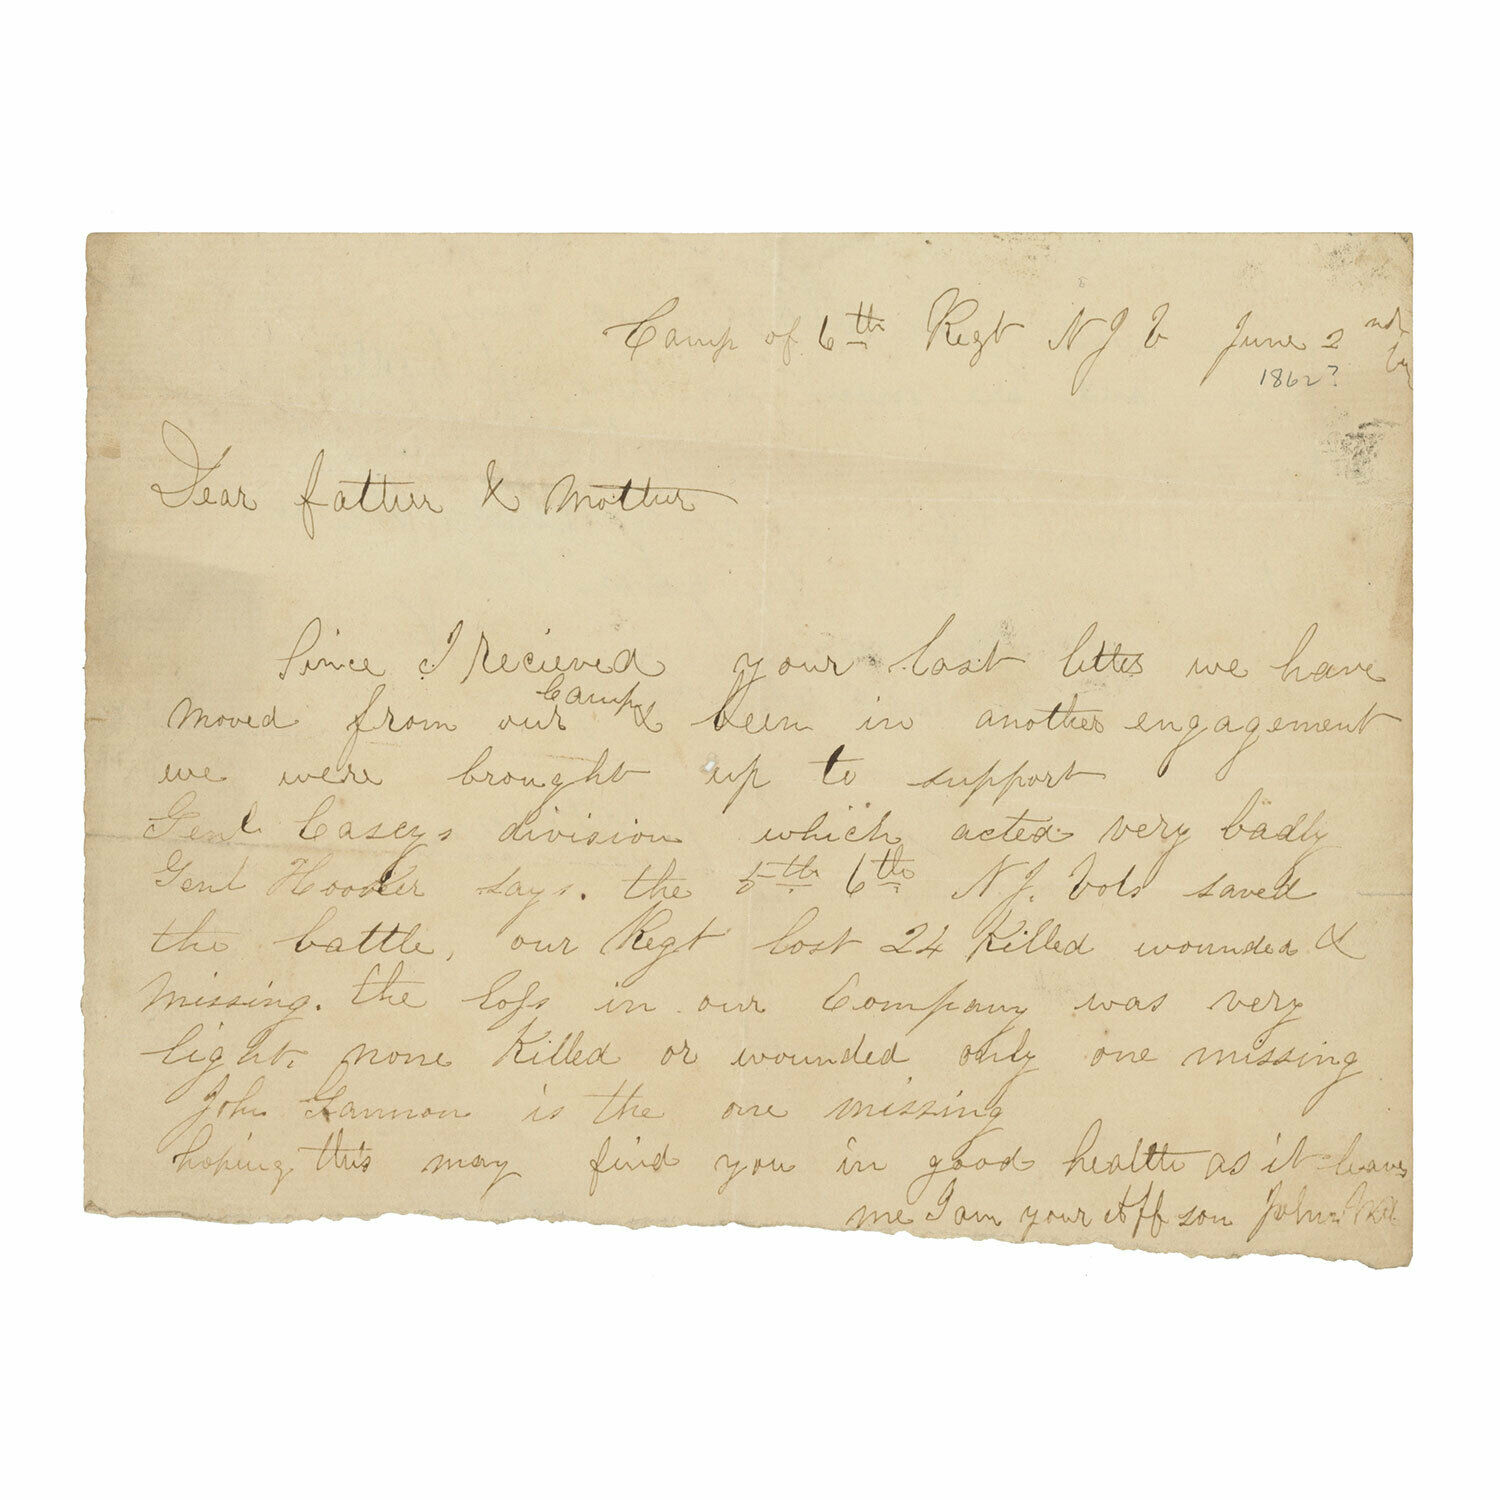 Camp of 6th Regt N J V June 2nd
1862?
Dear father & Mother
Since I recieved your last letter we have
Camp
moved from our & been in another engagement
we were brought up to support
Genl Caseys division which acted very badly
Genl Hooker says. the 5th 6th N.J. Vols saved
the battle, our Regt lost 24 Killed wounded &
missing. the loss in our Company was very
light. none Killed or wounded only one missing
John Gannon is the one missing
hoping this may find you in good health as it leaves
me I am your Aff son John